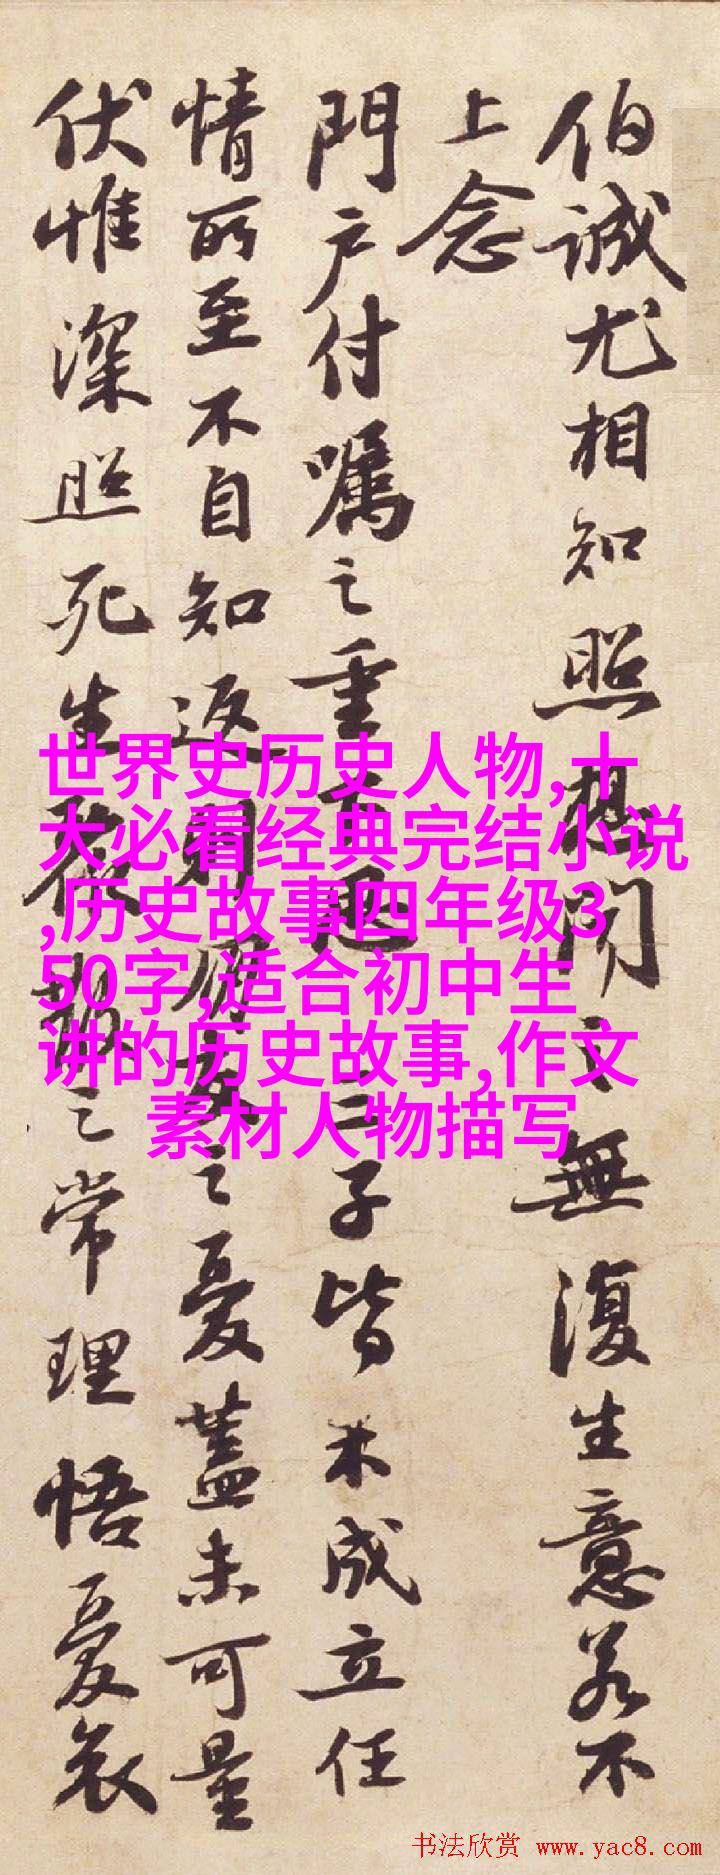 伯誠尤相知照想聞之無復生意若不
上念
門户付囑之重
子皆未成立任
情所至不自知返則
之憂蓋未可量
伏惟深照死生
之常理悟憂哀
世界史历史人物,十
大必看经典完结小说
,历史故事四年级3
50字,适合初中生
讲的历史故事,作文
素材人物描写
书法欣赏 www.yac8.com